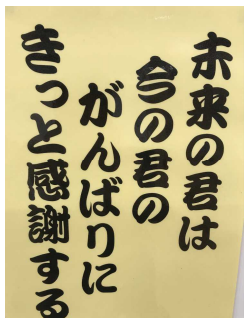 未来の君は
今の君の
がんばりに
きっと感謝する